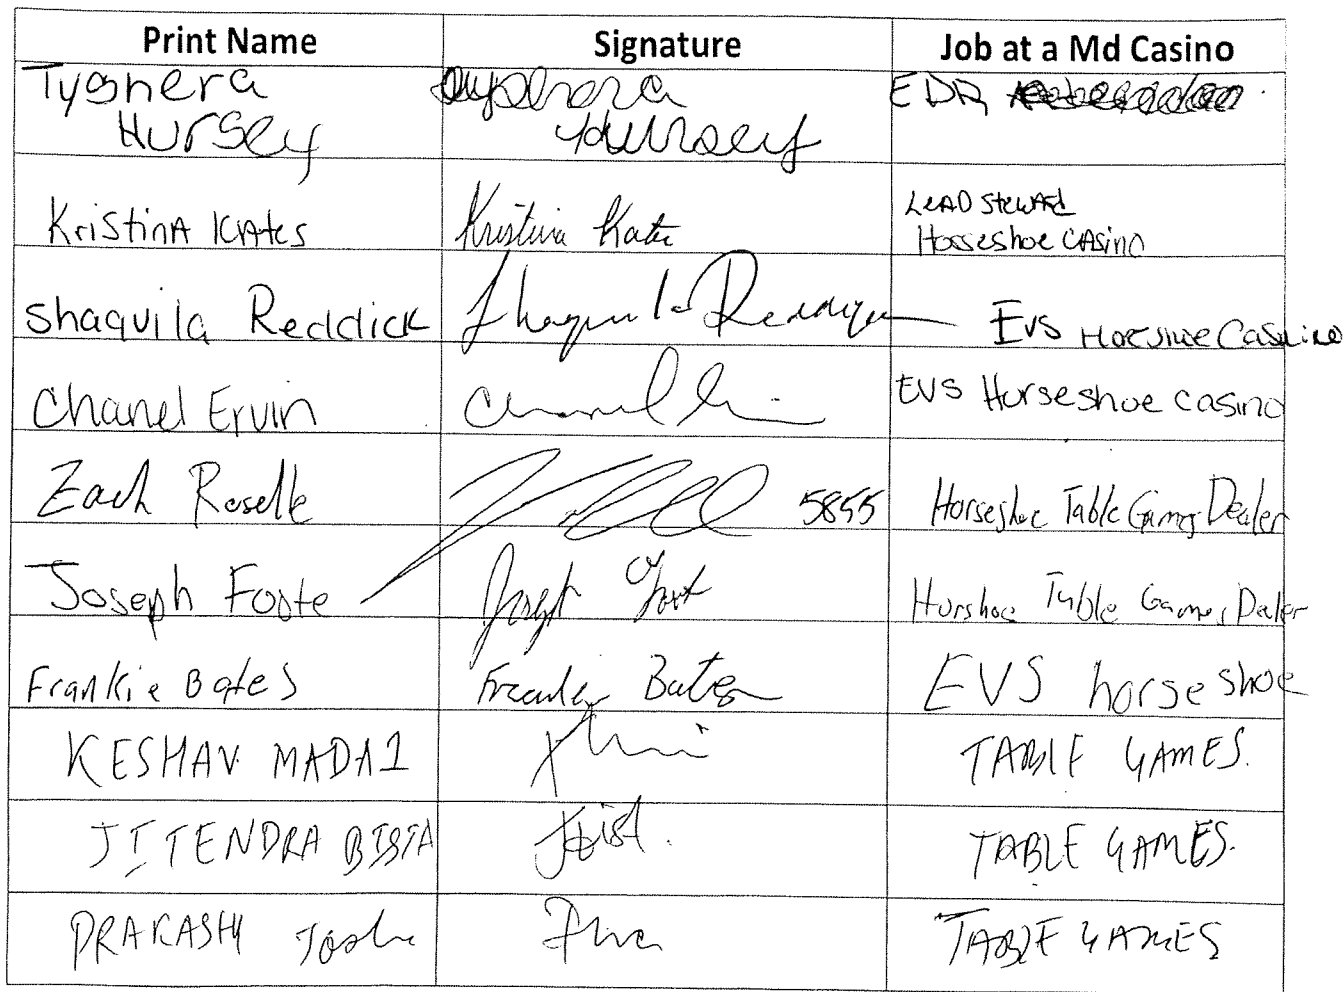 Print Name Signature Job at a Md Casino
Tyshera EDR
Hursey Hursey
Kristina Kates Kristina Kates Lead Steward
Horseshoe Casino
Shaquila Reddick Shaquila EVS Horshoe Casino
Chanel Ervin Chanel EVS Horseshoe Casino
Zach Roselle 5855 Horseshoe Table Games Dealer
Joseph Foote Joseph Foote Horshoe Table Games Dealer
Frankie Bates Frankie Bates EVS horse shoe
KESHAV MADAI TABLE GAMES.
JITENDRA BISTA TABLE GAMES.
PRAKASH Joshi TABLE GAMES